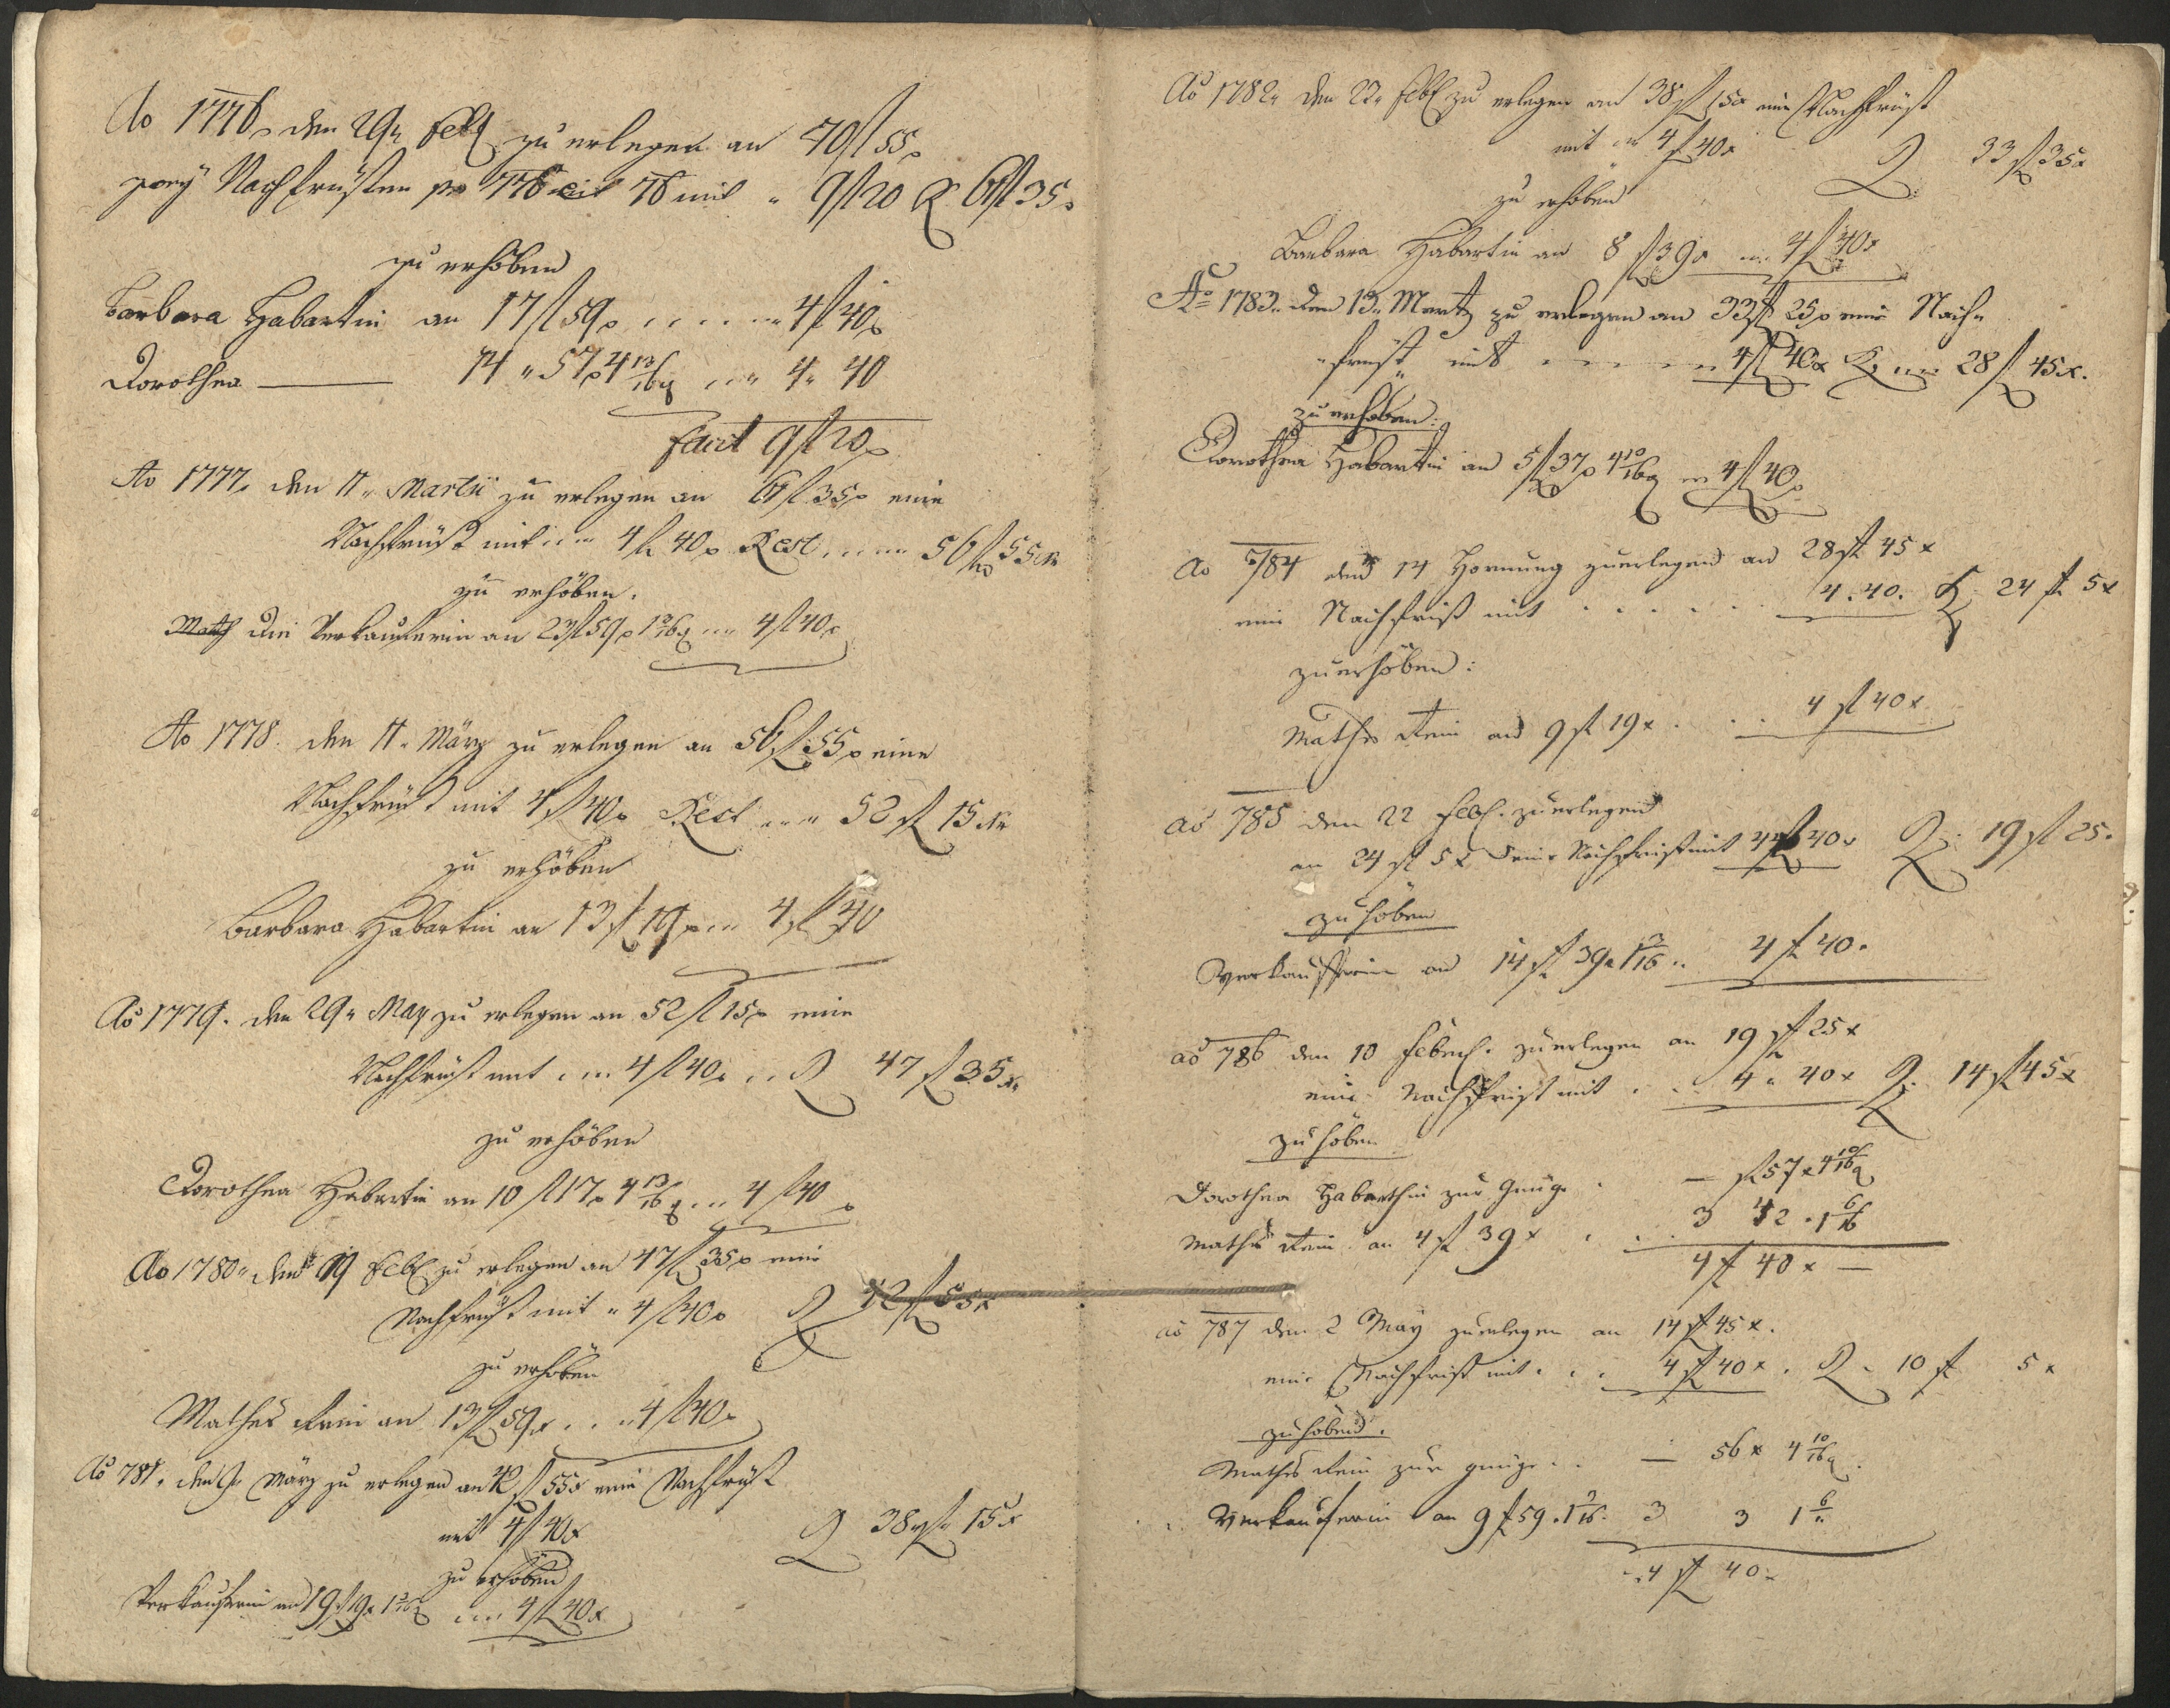 Ao 1776. den 29n Febr zu erlegen an 70 fl 55x
zwey Nachfrüsten pro 776 et 76 mit " 9 fl 20 R 61 fl 35x
zu erhöben
Barbara Habartin an 17 fl 59x .... 4 fl 40x
Dorothea —— 14 " 57x 4 13/16 q ... 4 " 40
facit 9 fl 20x
Ao 1777. den 11n Martii zu erlegen an 61 fl 35x eine
Nachfrüst mit ... 4 fl 40x Rest .... 56 fl 55x
zu erhöben.
die Verkauferin an 23 fl 59x 1 3/16 q ... 4 fl 40x
Ao 1778. den 11n März zu erlegen an 56 fl 55x eine
Nachfrüst mit 4 fl 40x Rest ... 52 fl 15x
zu erhöben
Barbara Habartin an 13 fl 19x ... 4 fl 40
Ao 1779. den 29n May zu erlegen an 52 fl 15x eine
Nachfrüst mit ... 4 fl 40x .. R 47 fl 35x
zu erhöben
Dorothea Habartin an 10 fl 17x 4 13/16 q ... 4 fl 40x
Ao 1780n den 19 Febr zu erlegen an 47 fl 35x eine
Nachfrüst mit " 4 fl 40x R 42 fl 55x
zu erhöben
Mathes Rein an 13 fl 59x ... 4 fl 40x
Ao 781. den 9 März zu erlegen an 42 fl 55x eine Nachfrüst
mit 4 fl 40x R 38 fl 15x
zu erhöben
Verkauferin an 19 fl 19x 1 3/16 q ... 4 fl 40x
Ao 1782n den 22n Febr zu erlegen an 38 fl 15x eine Nachfrüst
mit ... 4 fl 40x R 33 fl 35x
zu erhöben
Barbara Habartin an 8 fl 39x ... 4 fl 40x
Ao 1783. den 13n Martz zu erlegen an 33 fl 25x eine Nach=
früst mit .... 4 fl 40x R ... 28 fl 45x.
zu erhoben:
Dorothea Habartin an 5 fl 37x 4 10/16 q ... 4 fl 40x
Ao 784 den 14 Hornung zuerlegen an 28 fl 45x
eine Nachfrist mit ..... 4. 40. R 24 fl 5x
zuerhöben:
Mathes Rein an 9 fl 19x ... 4 fl 40x
ao 785 den 22 Febr. zuerlegen
an 24 fl 5x eine Nachfrist mit 4 fl 40x R: 19 fl 25.
zu höben
Verkaufferin an 14 fl 39x 1 3/16 .. 4 fl 40.
ao 786 den 10 Febru. zuerlegen an 19 fl 25x
eine Nachfrist mit ... 4 " 40x R: 14 fl 45x
zu höben
Dorothea Habarthin zur Gnüge . — fl 57x 4 10/16 q
Mathes Rein an 4 fl 39x ... 3 42 . 1 6/16
4 fl 40x —
ao 787 den 2 May zuerlegen an 14 fl 45x.
eine Nachfrist mit ... 4 fl 40x. R. 10 fl 5x
zuhöben.
Mathes Rein zur gnüge .. — 56x 4 10/16 q.
Verkauferin an 9 fl 59. 1 3/16. 3 3 1 6/"
4 fl 40x